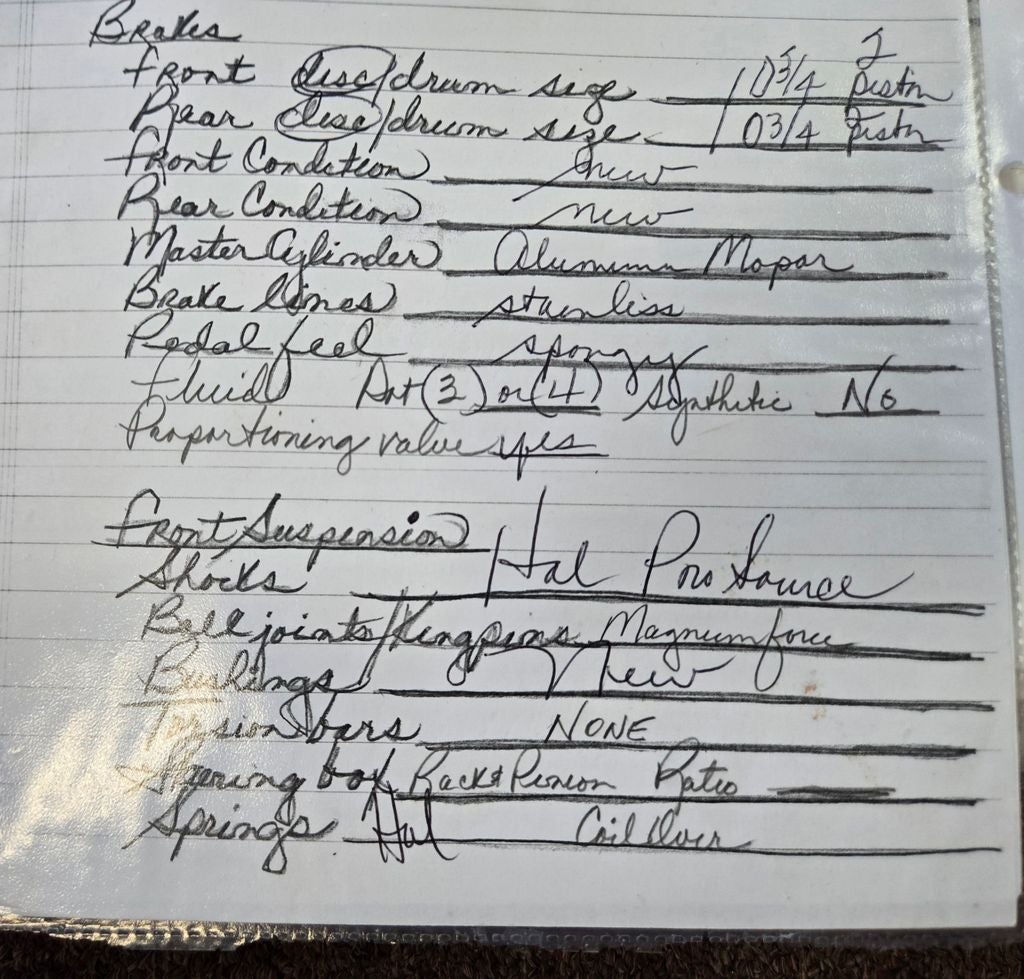 Brakes
Front disc/drum size 10 3/4 2 Piston
Rear disc/drum size 10 3/4 Piston
Front Condition new
Rear Condition new
Master Cylinder Aluminum Mopar
Brake lines stainliss
Pedal feel spongy
Fluid Dot (3) or (4) Synthetic No
Proportioning valve yes
Front Suspension
Shocks Hal Pro Source
Ball joints/Kingpins Magnumforce
Bushings New
Torsion bars NONE
Stearing box Rack & Pinion Ratio
Springs Hal Coil Over